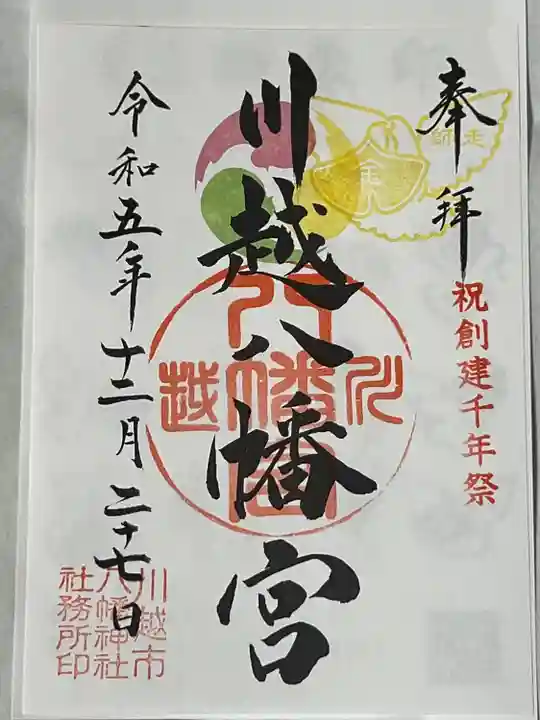 奉拝
師走
祝創建千年祭
川越八幡宮
川越八幡宮
令和五年十二月二十七日
川越市
八幡神社
社務所印